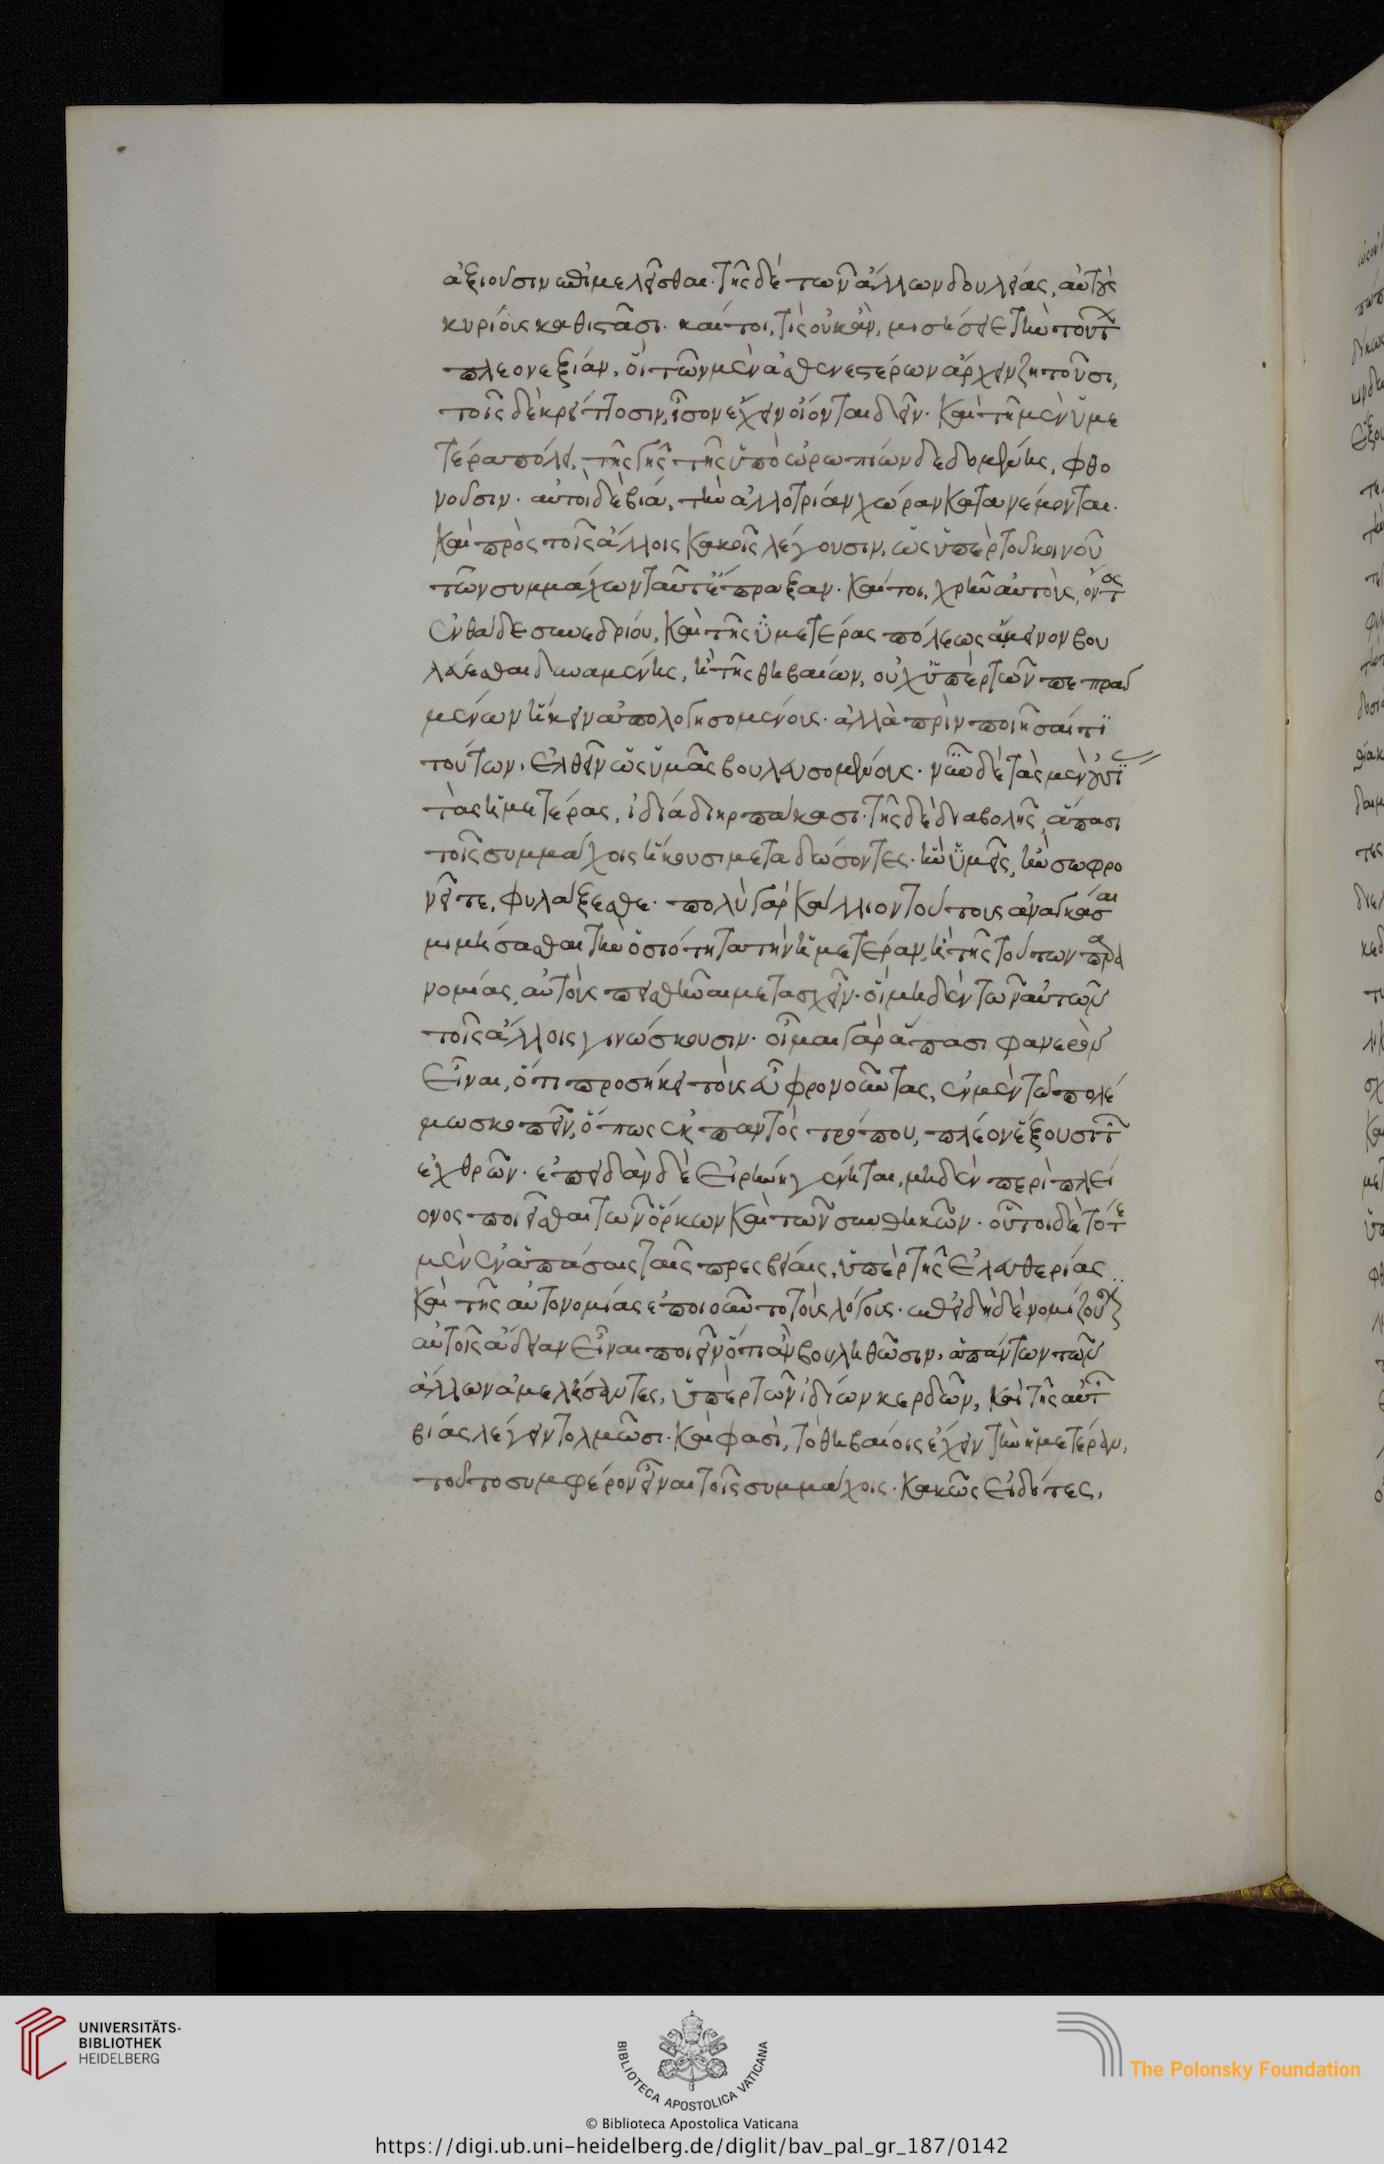 ἀξιοῦσιν ἐπιμελεῖσθαι. τῆς δὲ τῶν ἄλλων δουλείας, αὑτοὺς
κυρίους καθιστᾶσι. καίτοι, τίς οὐκ ἂν, μισήσειε τὴν τούτ
πλεονεξίαν, οἳ τῶν μὲν ἀσθενεστέρων ἄρχειν ζητοῦσι,
τοῖς δὲ κρείττοσιν, ἴσον ἔχειν οἴονται δεῖν. καὶ τῇ μὲν ὑμε
τέρα πόλει, τῆς γῆς τῆς ὑπὸ ὠρωπίων δεδομένης, φθο
νοῦσιν. αὐτοὶ δὲ βία, τὴν ἀλλοτρίαν χώραν κατανέμονται.
καὶ πρὸς τοῖς ἄλλοις κακοῖς λέγουσιν, ὡς ὑπὲρ τοῦ κοινοῦ
τῶν συμμάχων ταῦτ' ἔπραξαν. καίτοι, χρῆν αὐτοὺς, ὄντος
ἐνθάδε συνεδρίου, καὶ τῆς ὑμετέρας πόλεως ἄμεινον βου
λεύεσθαι δυναμένης, ἢ τῆς θηβαίων, οὐχ ὑπὲρ τῶν πεπραγ
μένων ἥκειν ἀπολογησομένους. ἀλλὰ πρὶν ποιῆσαί τι
τούτων, ἐλθεῖν ὡς ὑμᾶς βουλευσομένους. νῦν δὲ τὰς μὲν οὐσί
τὰς ἡμετέρας, ἰδία διηρπάκασι. τῆς δὲ διαβολῆς, ἅπασι
τοῖς συμμάχοις ἥκουσι μεταδώσοντες. ἣν ὑμεῖς, ἢν σωφρο
νῆτε, φυλάξεσθε. πολὺ γὰρ κάλλιον τούτους ἀναγκάσαι
μιμήσασθαι τὴν ὁσιότητα τὴν ἡμετέραν, ἢ τῆς τούτων παρα
νομίας, αὐτοὺς πεισθῆναι μετασχεῖν. οἳ μηδὲν τῶν αὐτῶν
τοῖς ἄλλοις γινώσκουσιν. οἶμαι γὰρ ἅπασι φανερὸν
εἶναι, ὅτι προσήκει τοὺς εὖ φρονοῦντας, ἐν μὲν τῶ πολέ
μω σκοπεῖν, ὅπως ἐκ παντὸς τρόπου, πλέον ἕξουσι τῶν
ἐχθρῶν. ἐπειδὰν δὲ εἰρήνη γένηται, μηδὲν περὶ πλεί
ονος ποιεῖσθαι τῶν ὅρκων καὶ τῶν συνθηκῶν. οὗτοι δὲ τότε
μὲν ἐν ἁπάσαις ταῖς πρεσβείαις, ὑπὲρ τῆς ἐλευθερίας
καὶ τῆς αὐτονομίας ἐποιοῦντο τοὺς λόγους. ἐπειδὴ δὲ νομίζουσιν
αὑτοῖς ἄδειαν εἶναι ποιεῖν ὅτι ἂν βουληθῶσιν, ἁπάντων τῶν
ἄλλων ἀμελήσαντες, ὑπὲρ τῶν ἰδίων κερδῶν, καὶ τῆς αὑτῶν
βίας λέγειν τολμῶσι. καὶ φασὶ, τὸ θηβαίους ἔχειν τὴν ἡμετέραν,
τοῦτο συμφέρον εἶναι τοῖς συμμάχοις. κακῶς εἰδότες,
UNIVERSITÄTS-
BIBLIOTHEK
HEIDELBERG
BIBLIOTECA APOSTOLICA VATICANA
The Polonsky Foundation
© Biblioteca Apostolica Vaticana
https://digi.ub.uni-heidelberg.de/diglit/bav_pal_gr_187/0142